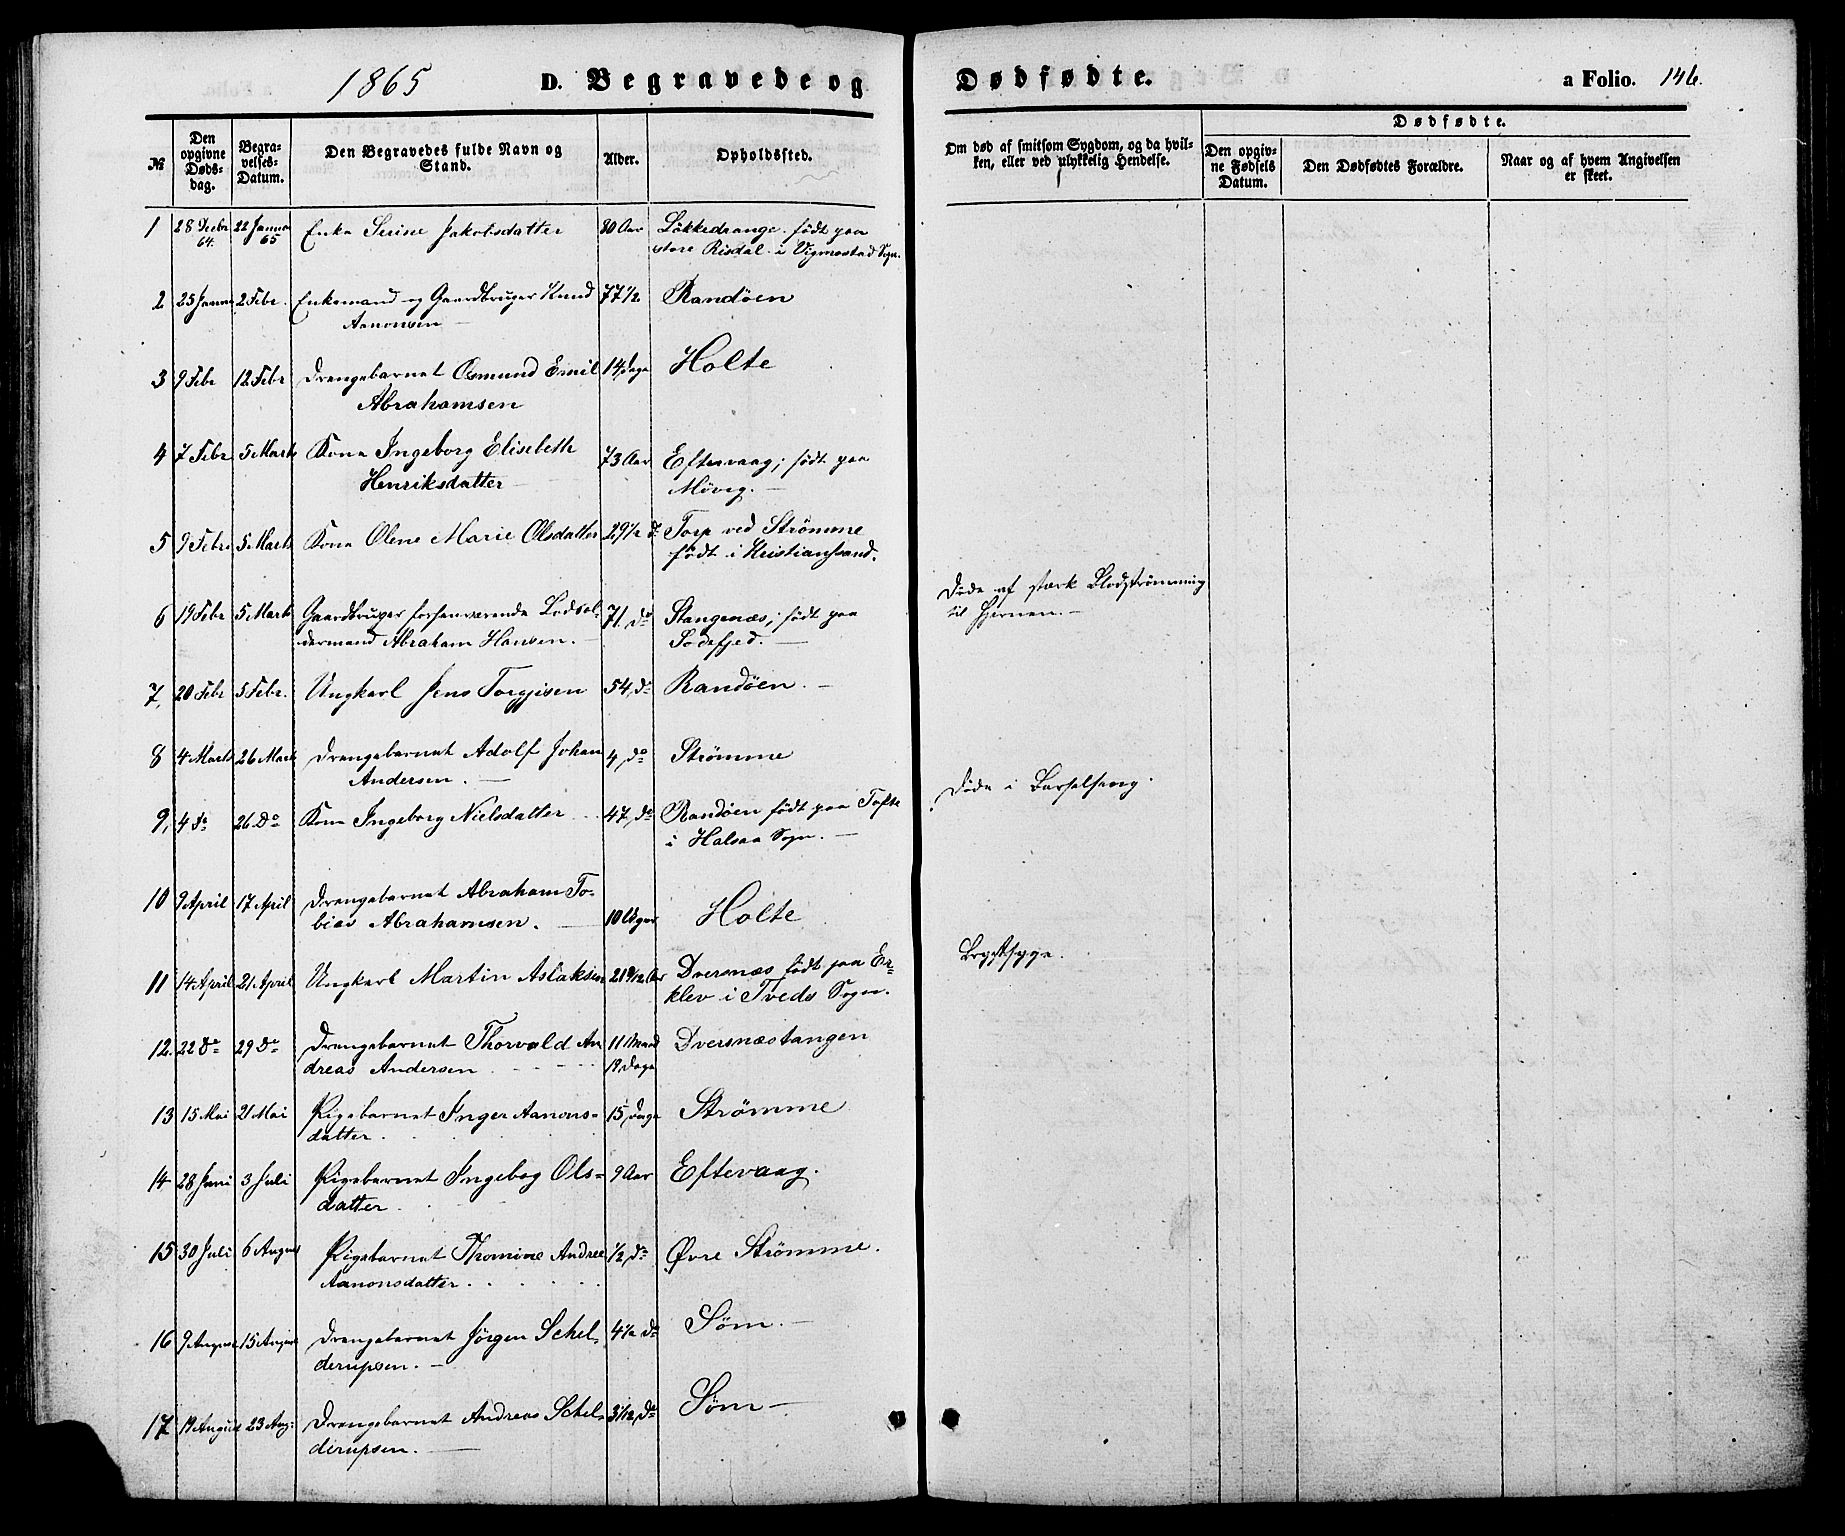 1865 D. Begravede og Dødfødte. a Folio. 146.
№ Den opgivne Dødsdag. Begravelses-Datum. Den Begravedes fulde Navn og Stand. Alder. Opholdssted. Om død af smitsom Sygdom, og da hvilken, eller ved ulykkelig Hendelse. Dødfødte.
Den opgivne Fødsels Datum. Den Dødfødtes Forældre. Naar og af hvem Angivelsen er skeet.
1 28 Decbr 64. 22 Janua 65 Enke Serine Jakobsdatter 80 Aar Løkkedrange. født paa
store Risdal i Vigmostad Sogn.
2 25 Janua 2 Febr. Enkemand og Gaardbruger Knud 77 1/2 Randøen
Aanonsen
3 9 Febr 12 Febr Drengebarnet Osmund Emil 14 Dage Holte
Abrahamsen
4 7 Febr 5 Marts Kone Ingeborg Elisebeth 73 Aar Eftervaag; født paa
Henriksdatter Møvig.
5 9 Febr 5 Marts Kone Olene Marie Olsdatter 29 1/2 d. Torp ved Strømme
født i Kristianssand.
6 19 Febr 5 Marts Gaardbruger forhenværende Lodsol- 71. do Stangenæs; født paa Døde af stærk Blodstrømning
dermand Abraham Hansen. Lodefjed. til Hjernen.
7, 20 Febr 5 Febr. Ungkarl Jens Torgjisen 54, do Randøen.
8 4 Marts 26 Marts Drengebarnet Adolf Johan 4, do Strømme
Andersen.
9, 4 do 26 Do Kone Ingeborg Nielsdatter 47, do Randøen født paa Tofte Døde i Barselseng.
i Halsaa Sogn.
10 9 April 17 April Drengebarnet Abraham To-
bias Abrahamsen. 10 Uger Holte
11 14 April 21 April Ungkarl Martin Aslaksen 21 9/12 Aar Dversnæs født paa Er- Brystsyge.
klev i Tveds Sogn.
12. 22 do 29 do Drengebarnet Thorvald An 11 Maand Dversnæstangen
dreas Andersen 19 Dage
13 15 Mai 21 Mai Pigebarnet Inger Aanons- 15 Dage Strømme
datter.
14 28 Juni 3 Juli Pigebarnet Ingebog Ols- 9 Aar Eftevaag.
datter.
15 30 Juli 6 August Pigebarnet Thomine Andrea 1/2 do Øvre Strømme.
Aanonsdatter.
16 9 August 15 August Drengebarnet Jørgen Schel- 4 1/2 do Søm.
derupsen.
17 19 August 23 Aug: Drengebarnet Andreas Schel- 3 1/12, do Søm
derupsen.